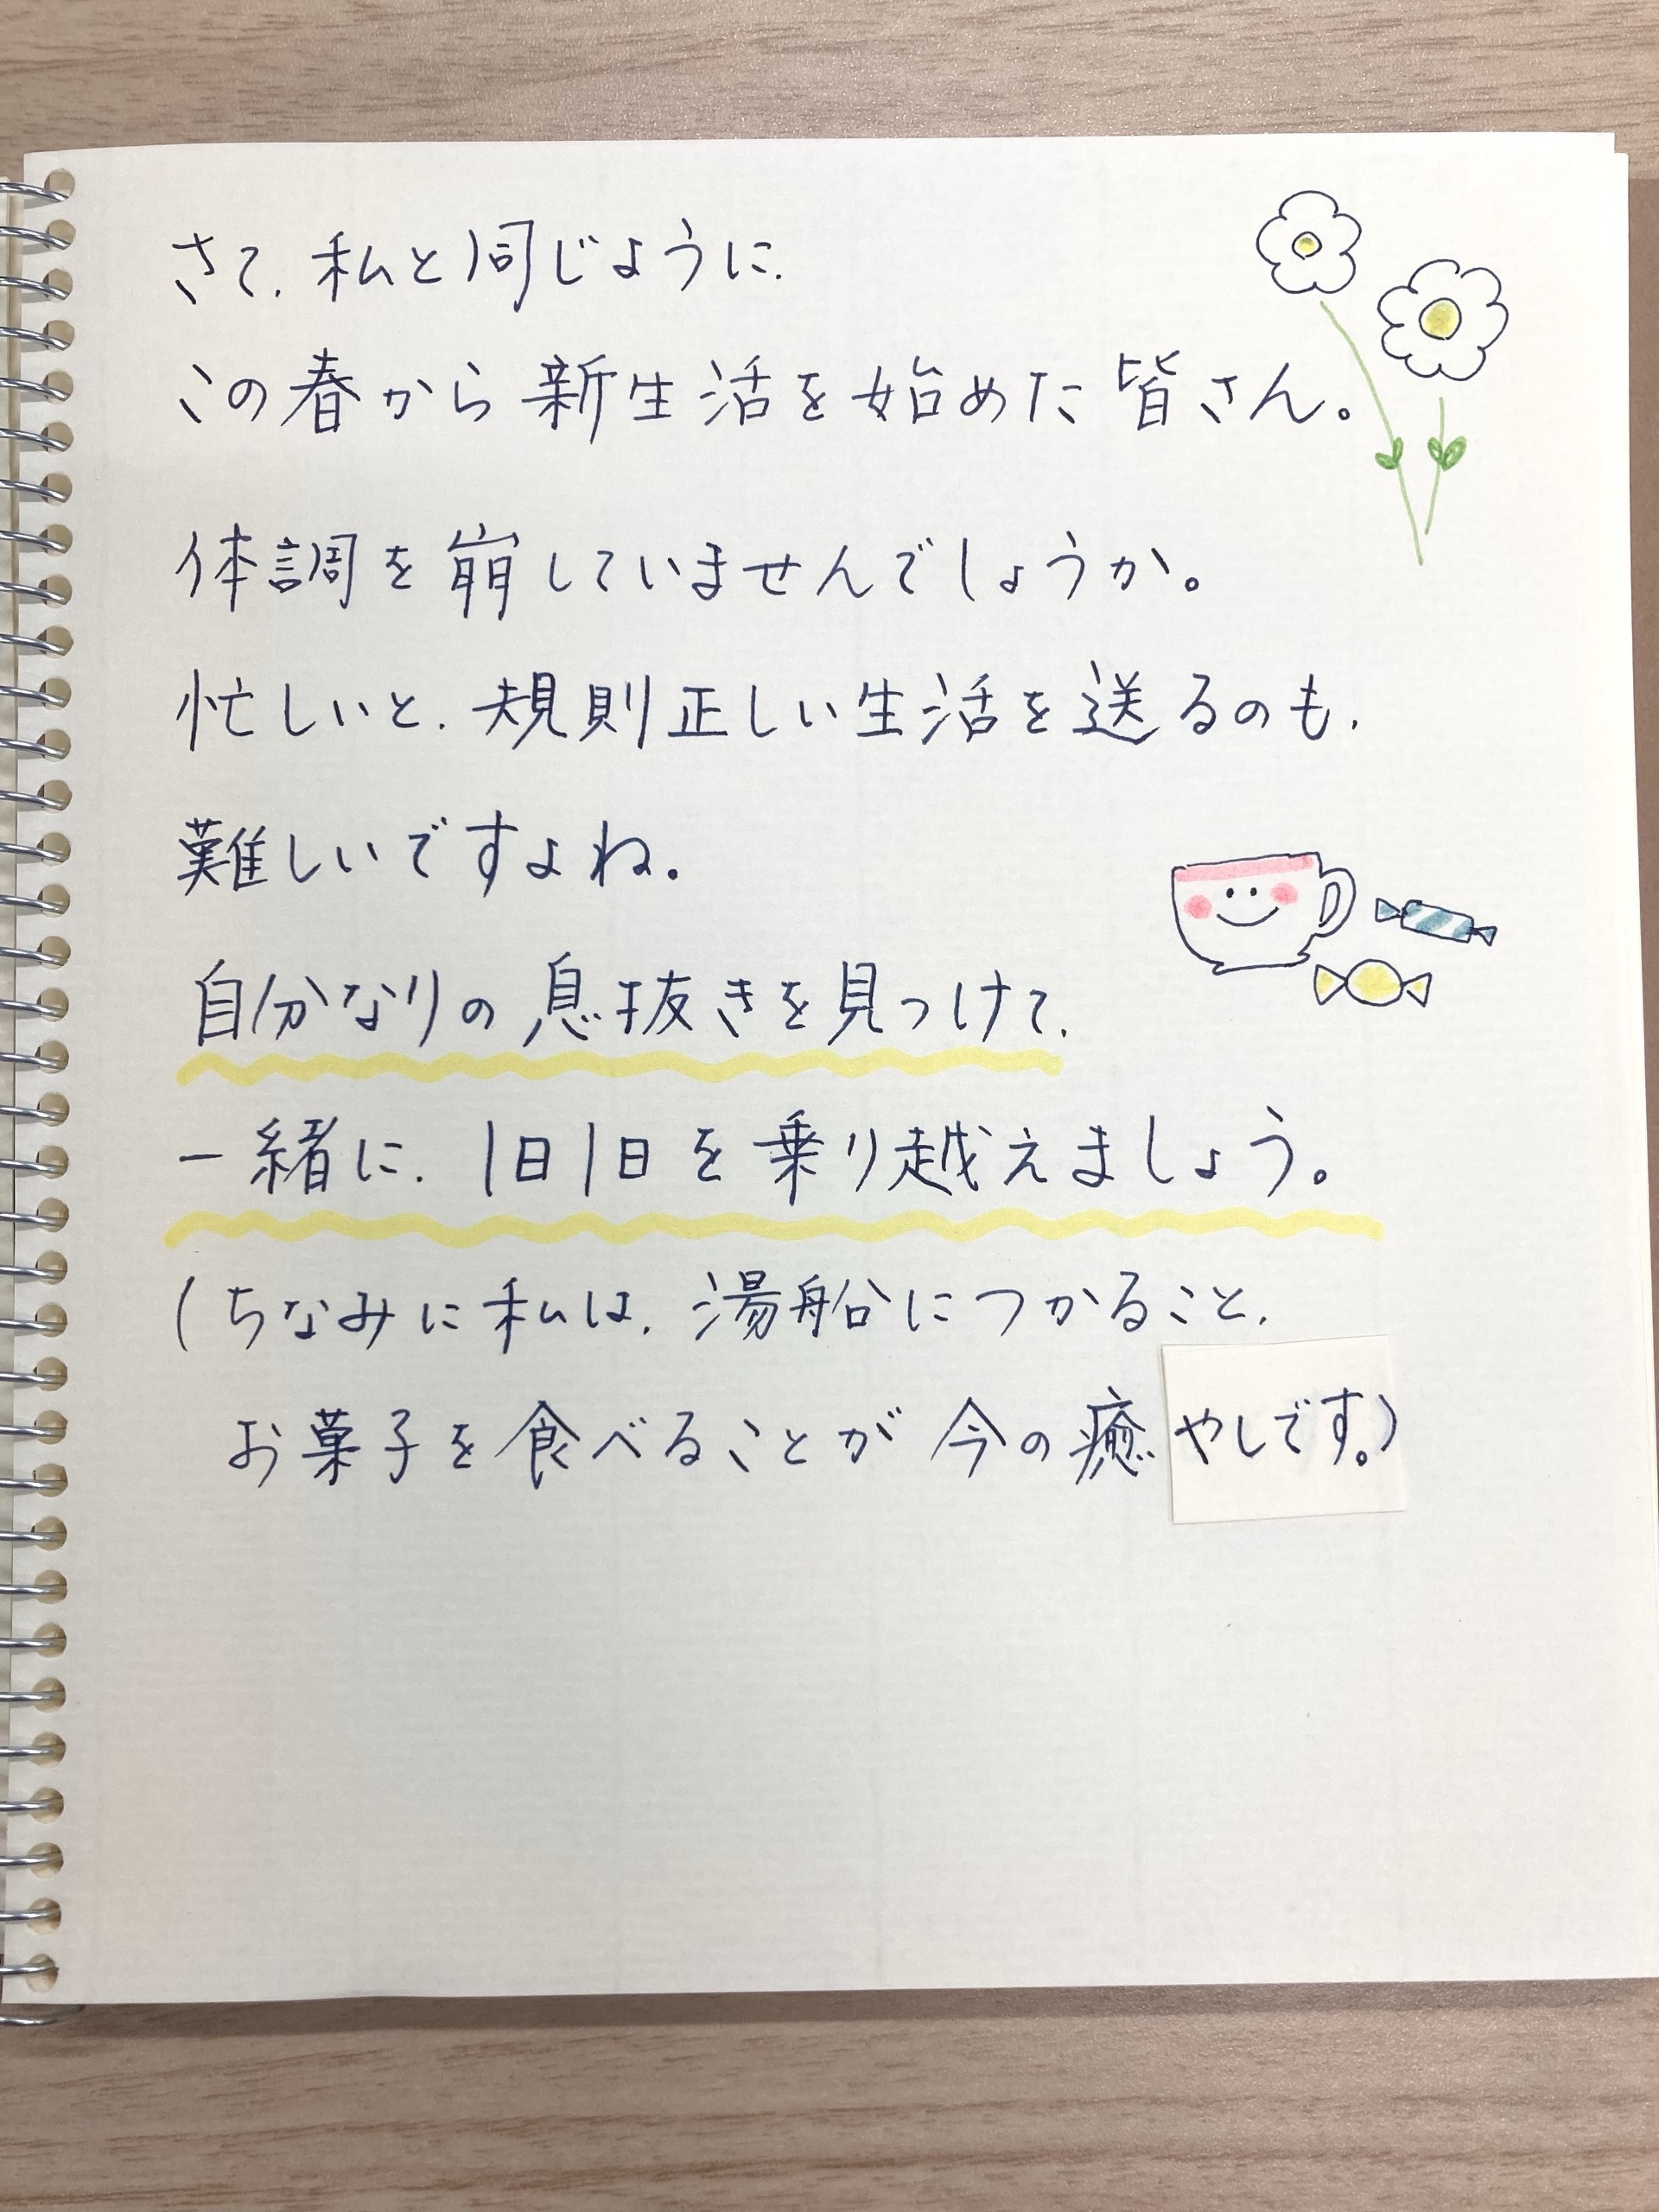 さて、私と同じように、
この春から新生活を始めた皆さん。
体調を崩していませんでしょうか。
忙しいと、規則正しい生活を送るのも、
難しいですよね。
自分なりの息抜きを見つけて、
一緒に、1日1日を乗り越えましょう。
(ちなみに私は、湯船につかること、
お菓子を食べることが今の癒やしです。)